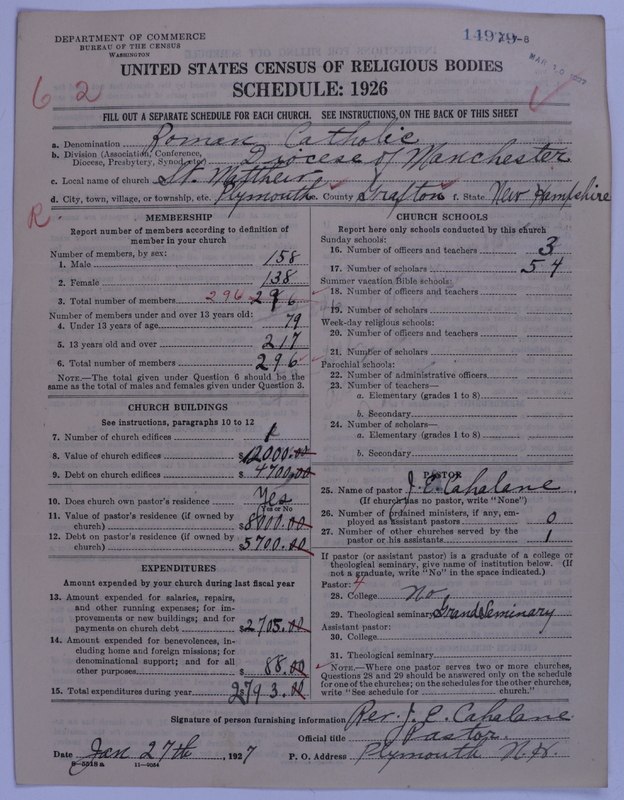 DEPARTMENT OF COMMERCE
BUREAU OF THE CENSUS
WASHINGTON
14979 -8
UNITED STATES CENSUS OF RELIGIOUS BODIES
SCHEDULE: 1926
62
FILL OUT A SEPARATE SCHEDULE FOR EACH CHURCH. SEE INSTRUCTIONS ON THE BACK OF THIS SHEET
a. Denomination Roman Catholic
b. Division (Association, Conference, Diocese, Presbytery, Synod, etc.) Diocese of Manchester
c. Local name of church St. Matthew
d. City, town, village, or township, etc. Plymouth e. County Grafton f. State New Hampshire
R.
MEMBERSHIP
Report number of members according to definition of
member in your church
Number of members, by sex:
1. Male 158
2. Female 138
3. Total number of members 296 296
Number of members under and over 13 years old:
4. Under 13 years of age 79
5. 13 years old and over 217
6. Total number of members 296
NOTE.—The total given under Question 6 should be the
same as the total of males and females given under Question 3.
CHURCH BUILDINGS
See instructions, paragraphs 10 to 12
7. Number of church edifices 1
8. Value of church edifices $12000.00
9. Debt on church edifices $4700.00
10. Does church own pastor's residence Yes
Yes or No
11. Value of pastor's residence (if owned by
church) $8000.00
12. Debt on pastor's residence (if owned by
church) $5700.00
EXPENDITURES
Amount expended by your church during last fiscal year
13. Amount expended for salaries, repairs,
and other running expenses; for im-
provements or new buildings; and for
payments on church debt $2705.00
14. Amount expended for benevolences, in-
cluding home and foreign missions; for
denominational support; and for all
other purposes $88.00
15. Total expenditures during year $2793.00
CHURCH SCHOOLS
Report here only schools conducted by this church
Sunday schools:
16. Number of officers and teachers 3
17. Number of scholars 54
Summer vacation Bible schools:
18. Number of officers and teachers
19. Number of scholars
Week-day religious schools:
20. Number of officers and teachers
21. Number of scholars
Parochial schools:
22. Number of administrative officers
23. Number of teachers—
a. Elementary (grades 1 to 8)
b. Secondary
24. Number of scholars—
a. Elementary (grades 1 to 8)
b. Secondary
PASTOR
25. Name of pastor J. E. Cahalane,
(If church has no pastor, write "None")
26. Number of ordained ministers, if any, em-
ployed as assistant pastors 0
27. Number of other churches served by the
pastor or his assistants 1
If pastor (or assistant pastor) is a graduate of a college or
theological seminary, give name of institution below. (If
not a graduate, write "No" in the space indicated.)
Pastor: 4
28. College No
29. Theological seminary Grand Seminary
Assistant pastor:
30. College
31. Theological seminary
NOTE.—Where one pastor serves two or more churches,
Questions 28 and 29 should be answered only on the schedule
for one of the churches; on the schedules for the other churches,
write "See schedule for church."
Signature of person furnishing information Rev. J. E. Cahalane
Official title Pastor.
Date Jan 27th, 1927 P. O. Address Plymouth N.H.
8-5518a 11-9034